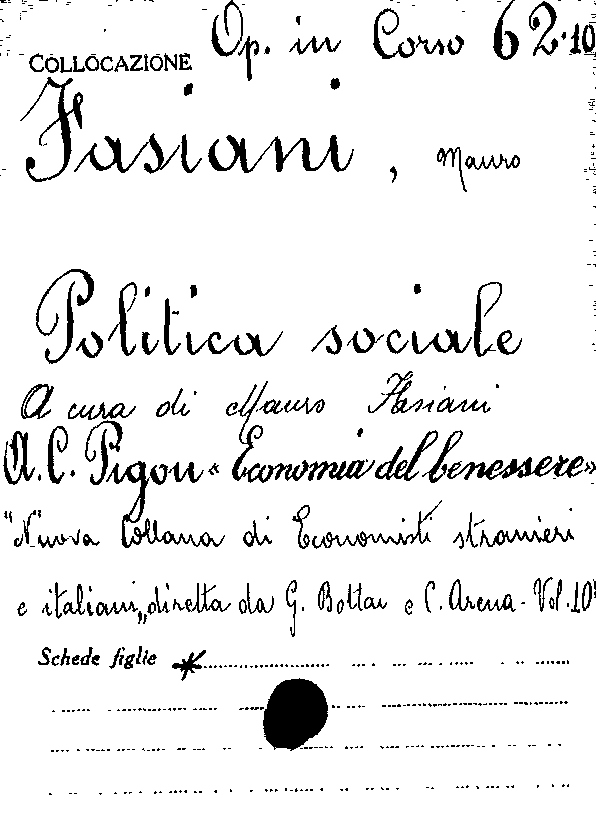 COLLOCAZIONE Op. in Corso 62.10
Fasiani, Mauro
Politica sociale
A cura di Mauro Fasiani
A. C. Pigou « Economia del benessere»
"Nuova Collana di Economisti stranieri
e italiani„ diretta da G. Bottai e C. Arena - Vol. 10º
Schede figlie *